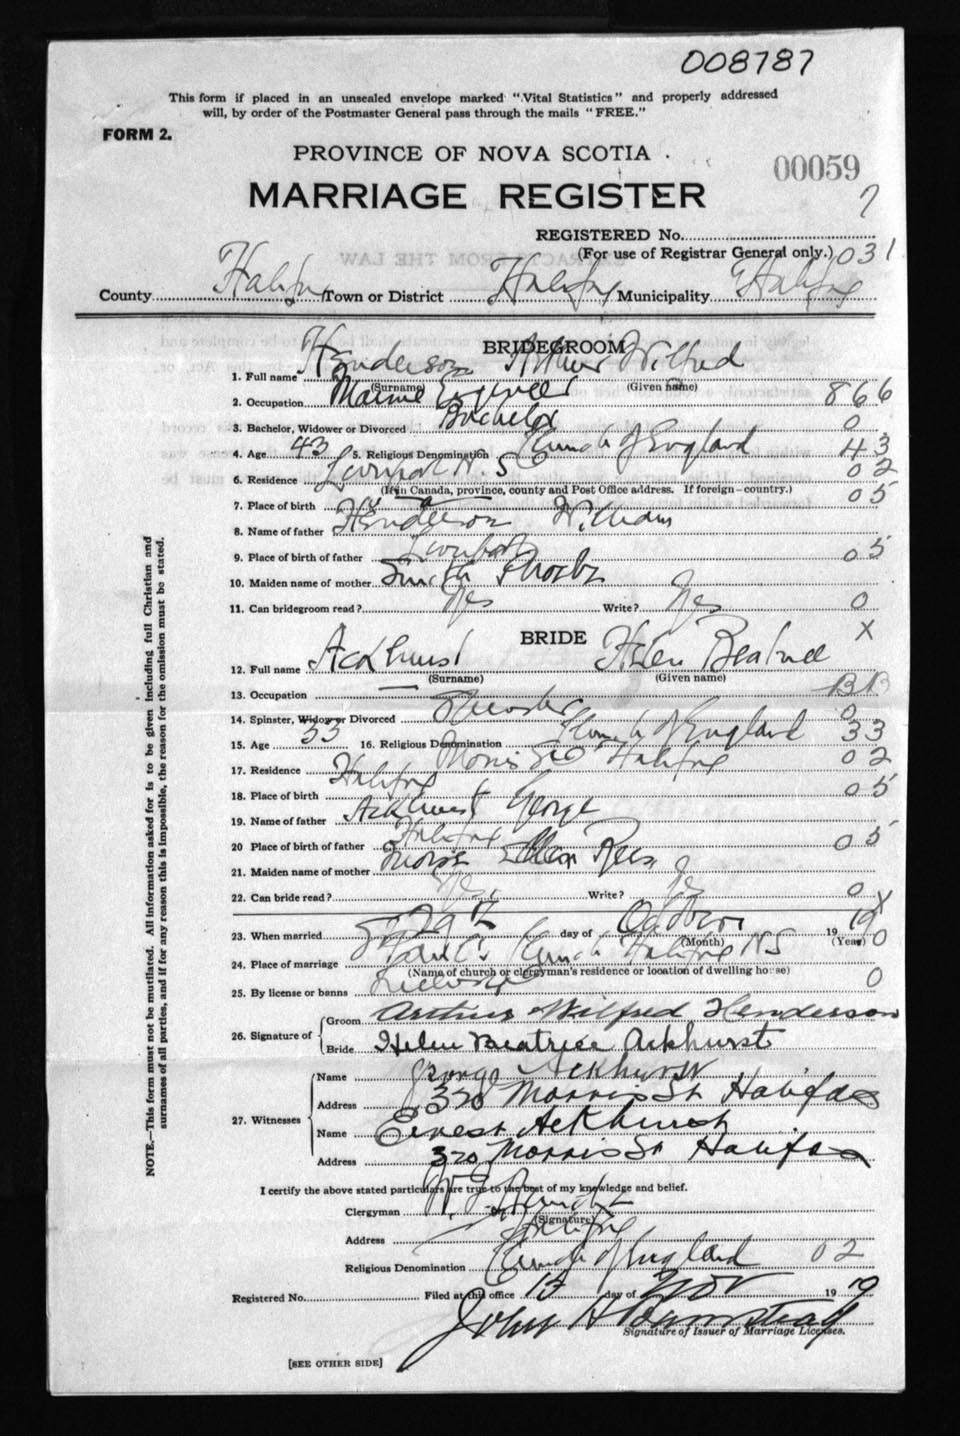 008787
This form if placed in an unsealed envelope marked "Vital Statistics" and properly addressed
will, by order of the Postmaster General pass through the mails "FREE."
FORM 2.
PROVINCE OF NOVA SCOTIA
00059
MARRIAGE REGISTER
7
REGISTERED No.
(For use of Registrar General only.) 031
County Halifax Town or District Halifax Municipality Halifax
BRIDEGROOM
1. Full name Henderson Arthur Wilfred
(Surname) (Given name)
2. Occupation Marine Engineer 866
3. Bachelor, Widower or Divorced Bachelor 0
4. Age 43 5. Religious Denomination Church of England 43
6. Residence Liverpool N.S. 02
(If in Canada, province, county and Post Office address. If foreign—country.)
7. Place of birth 05
8. Name of father Henderson William
9. Place of birth of father Liverpool 05
10. Maiden name of mother Smith Phoebe
11. Can bridegroom read? Yes Write? Yes 0
BRIDE X
12. Full name Ackhurst Helen Beatrice
(Surname) (Given name)
13. Occupation —
14. Spinster, Widow or Divorced Spinster 0
15. Age 33 16. Religious Denomination Church of England 33
17. Residence Morris St Halifax 02
18. Place of birth Halifax 05
19. Name of father Ackhurst George
20 Place of birth of father Halifax 05
21. Maiden name of mother
22. Can bride read? Yes Write? Yes 0
X
23. When married 29th day of October 19 19
(Month) (Year) 0
24. Place of marriage Church Halifax NS
(Name of church or clergyman's residence or location of dwelling house)
25. By license or banns License 0
26. Signature of Groom Arthur Wilfred Henderson
Bride Helen Beatrice Ackhurst
27. Witnesses
Name George Ackhurst
Address 320 Morris St Halifax
Name Ernest Ackhurst
Address 320 Morris St Halifax
I certify the above stated particulars are true to the best of my knowledge and belief.
Clergyman
(Signature)
Address Halifax
Religious Denomination Church of England 02
Registered No. Filed at this office 13 day of Nov 19 19
John
Signature of Issuer of Marriage Licenses.
[SEE OTHER SIDE]
NOTE.—This form must not be mutilated. All information asked for is to be given including full Christian and
surnames of all parties, and if for any reason this is impossible, the reason for the omission must be stated.